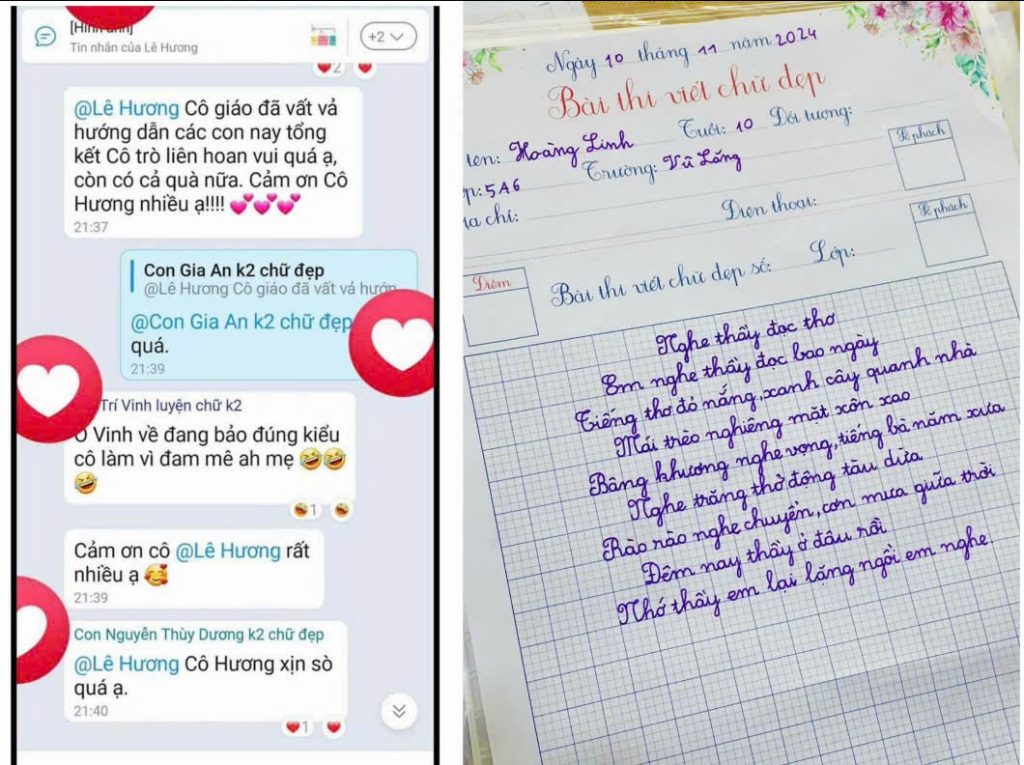 [Hình ảnh]
Tin nhắn của Lê Hương
+2
2
@Lê Hương Cô giáo đã vất vả
hướng dẫn các con nay tổng
kết Cô trò liên hoan vui quá ạ,
còn có cả quà nữa. Cảm ơn Cô
Hương nhiều ạ!!!! 💕💕💕
21:37
Con Gia An k2 chữ đẹp
@Lê Hương Cô giáo đã vất vả hướn
@Con Gia An k2 chữ đẹp
quá.
21:39
Trí Vinh luyện chữ k2
Vinh về đang bảo đúng kiểu
cô làm vì đam mê ah mẹ 🤣🤣
🤣
1
Cảm ơn cô @Lê Hương rất
nhiều ạ 🥰
21:39
Con Nguyễn Thùy Dương k2 chữ đẹp
@Lê Hương Cô Hương xịn sò
quá ạ.
21:40
1
Ngày 10 tháng 11 năm 2024
Bài thi viết chữ đẹp
tên: Hoàng Linh Tuổi: 10 Đối tượng:
p: 5A6 Trường: Vũ Lăng
ịa chỉ: Điện thoại:
Số phách
Số phách
Điểm
Bài thi viết chữ đẹp số: Lớp:
Nghe thầy đọc thơ
Em nghe thầy đọc bao ngày
Tiếng thơ đỏ nắng, xanh cây quanh nhà
Mái chèo nghiêng mặt xôn xao
Bâng khuâng nghe vọng, tiếng bà năm xưa
Nghe trăng thở động tàu dừa
Rào rào nghe chuyển, cơn mưa giữa trời
Đêm nay thầy ở đâu rồi
Nhớ thầy em lại lặng ngồi em nghe.